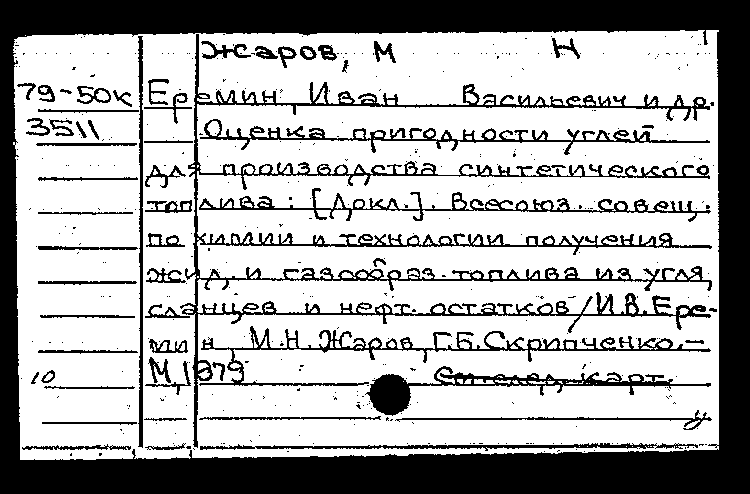 Жаров, М Н
79-50к Еремин, Иван Васильевич и др.
3511 Оценка пригодности углей
для производства синтетического
топлива: [Докл.]. Всесоюз. совещ.
по химии и технологии получения
жид. и газообраз. топлива из угля,
сланцев и нефт. остатков / И.В. Ере-
мин, М.Н. Жаров, Г.Б. Скрипченко. -
10 М, 1979 См. след. карт.